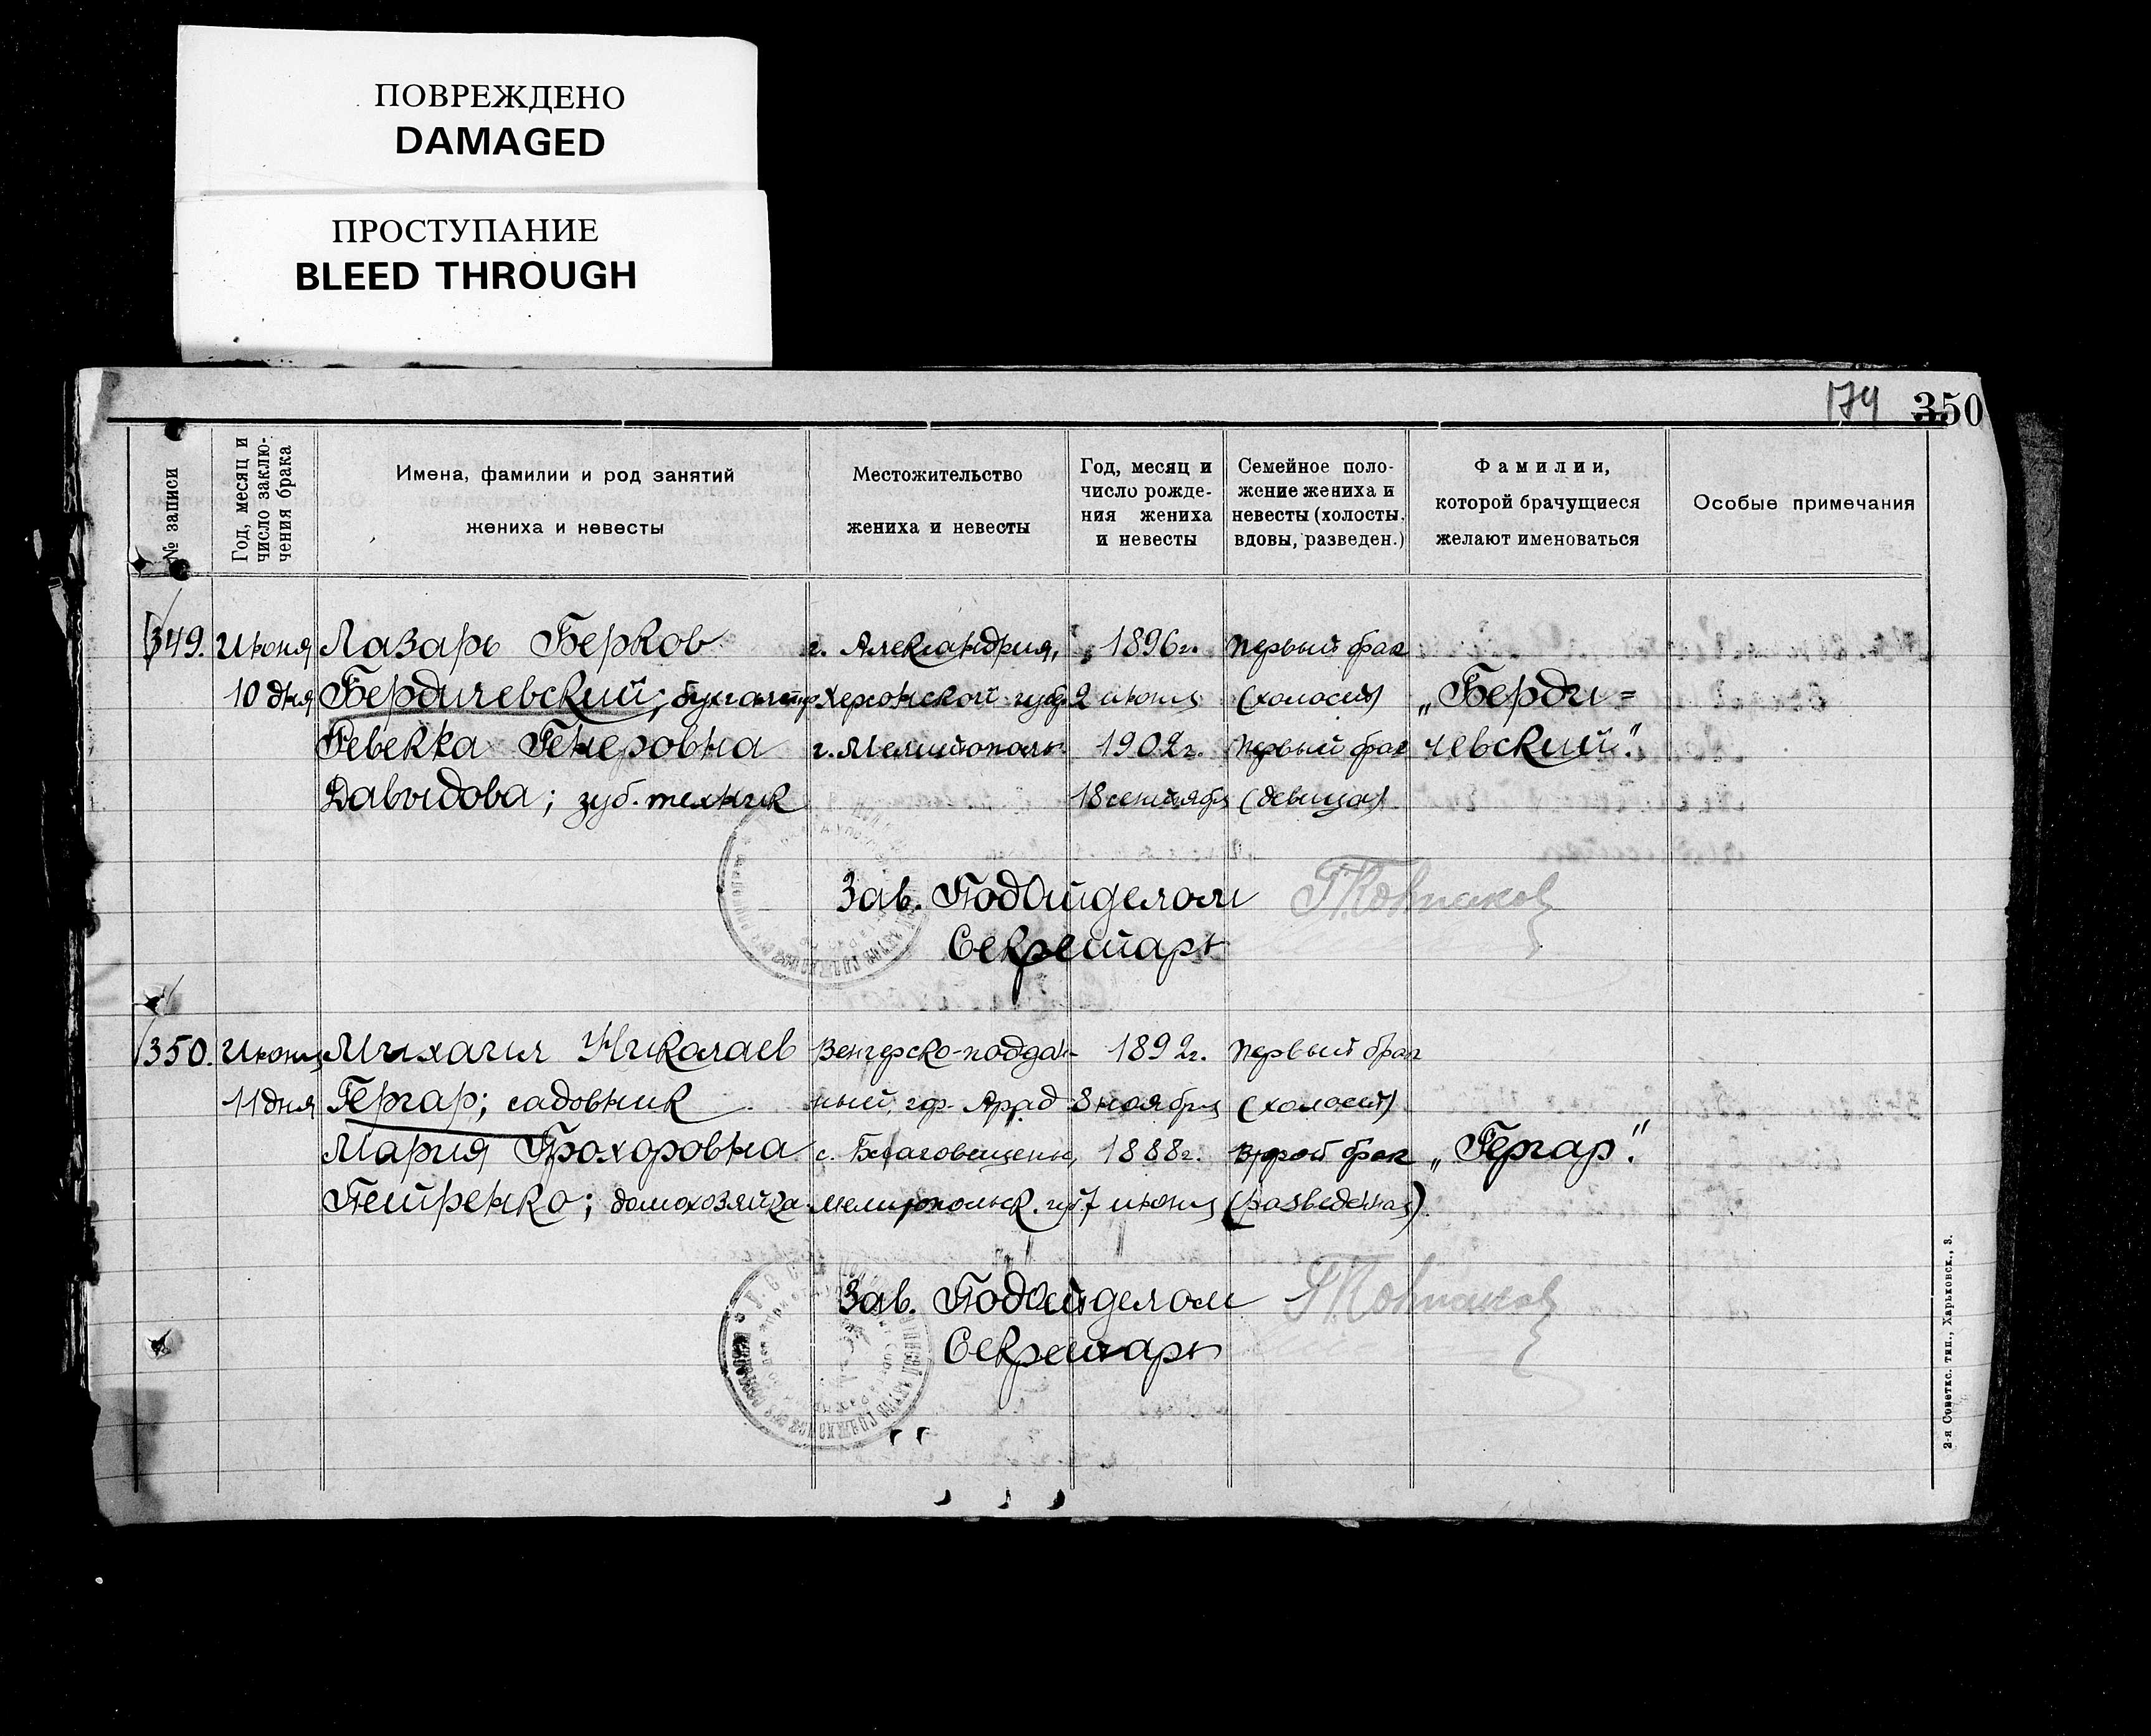 ПОВРЕЖДЕНО
DAMAGED
ПРОСТУПАНИЕ
BLEED THROUGH
174 350
№ записи
Год, месяц и
число заклю-
чения брака
Имена, фамилии и род занятий
жениха и невесты
Местожительство
жениха и невесты
Год, месяц и
число рожде-
ния жениха
и невесты
Семейное поло-
жение жениха и
невесты (холосты,
вдовы, разведен.)
Фамилии,
которой брачущиеся
желают именоваться
Особые примечания
349. Июня Лазарь Берков г. Александрия, 1896г. Первый брак
10 дня Бердичевский; бухгалтер Херсонской губ. 2 июня (холост) „Берди=
Ревекка Генеровна г. Мелитополь 1902г. Первый брак чевский".
Давыдова; зуб. техник 18 сентября (девица)
Зав. Подотделом
Секретарь
350. Июня Михаил Николаев Венгерско-поддан- 1892г. Первый брак
11 дня Гергар; садовник ный, гор. Арад 8 ноября (холост)
Мария Прохоровна с. Благовещенк, 1888г. Второй брак „Гергар".
Петренко; домохозяйка Мелитопольск. 7 июня (разведенная)
Зав. Подотделом
Секретарь
2-я Советкс. тип., Харьковск., 3.